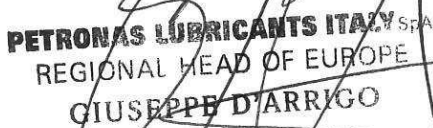 PETRONAS LUBRICANTS ITALY SpA
REGIONAL HEAD OF EUROPE
GIUSEPPE D'ARRIGO